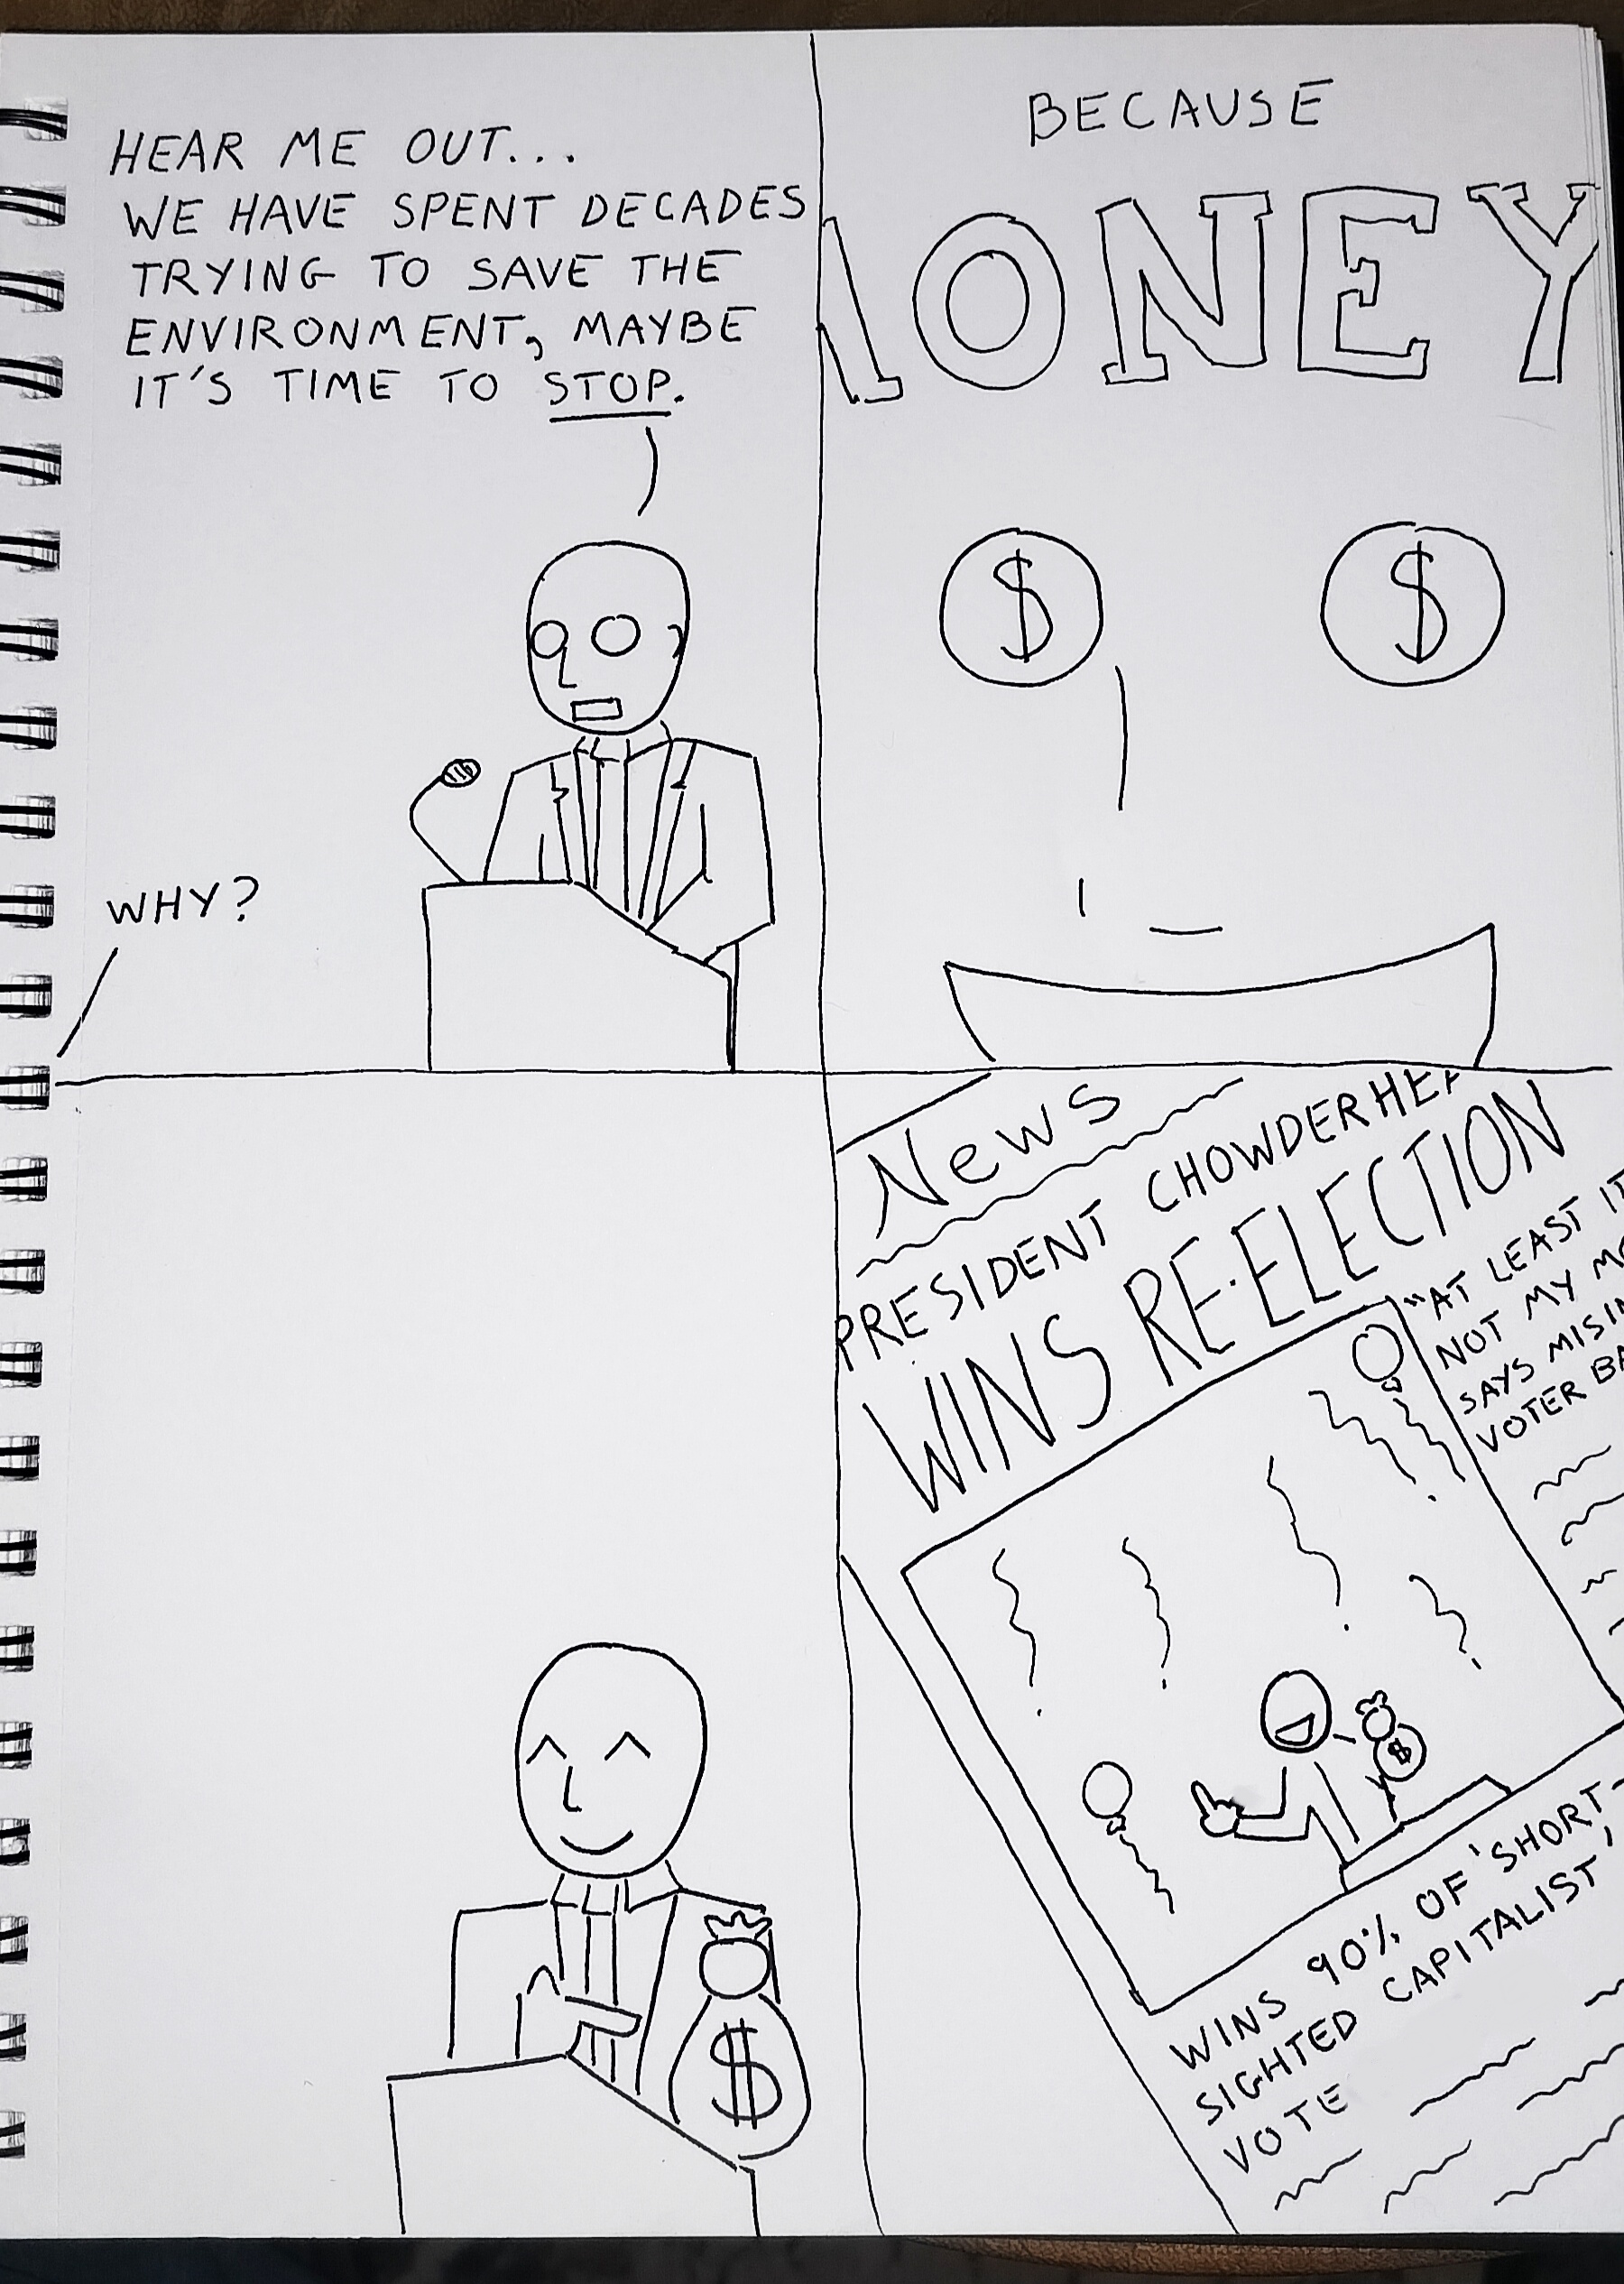 HEAR ME OUT...
WE HAVE SPENT DECADES
TRYING TO SAVE THE
ENVIRONMENT, MAYBE
IT'S TIME TO STOP.
WHY?
BECAUSE
MONEY
$ $
$
NEWS
PRESIDENT CHOWDERHEA
WINS RE-ELECTION
"AT LEAST IT
NOT MY
SAYS
VOTER
$
WINS 90% OF 'SHORT-
SIGHTED CAPITALIST'
VOTE